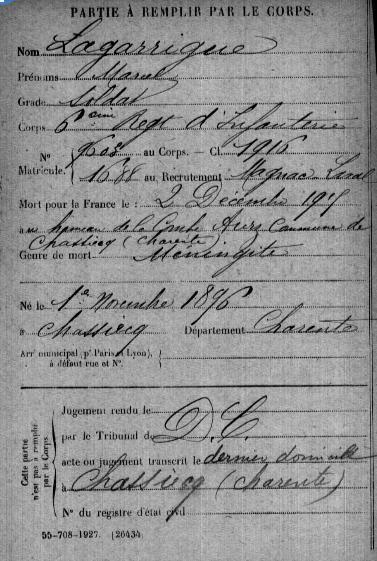 PARTIE À REMPLIR PAR LE CORPS.
Nom Lagarrigue
Prénoms Marcel
Grade Soldat
Corps 6eme Regt d'Infanterie
N° Matricule. au Corps. — Cl. 1916
1688 au Recrutement Magnac Laval
Mort pour la France le : 2 Décembre 191
au hameau de la Combe commune de
Chassiecq (Charente)
Genre de mort Méningite
Né le 1er Novembre 1896
à Chassiecq Département Charente
Arr municipal (pr Paris et Lyon),
à défaut rue et N°.
Cette partie n'est pas à remplir par le Corps.
Jugement rendu le
par le Tribunal de D.C.
acte ou jugement transcrit le dernier domicile
à Chassiecq (Charente)
N° du registre d'état civil
55-708-1927. [26434]